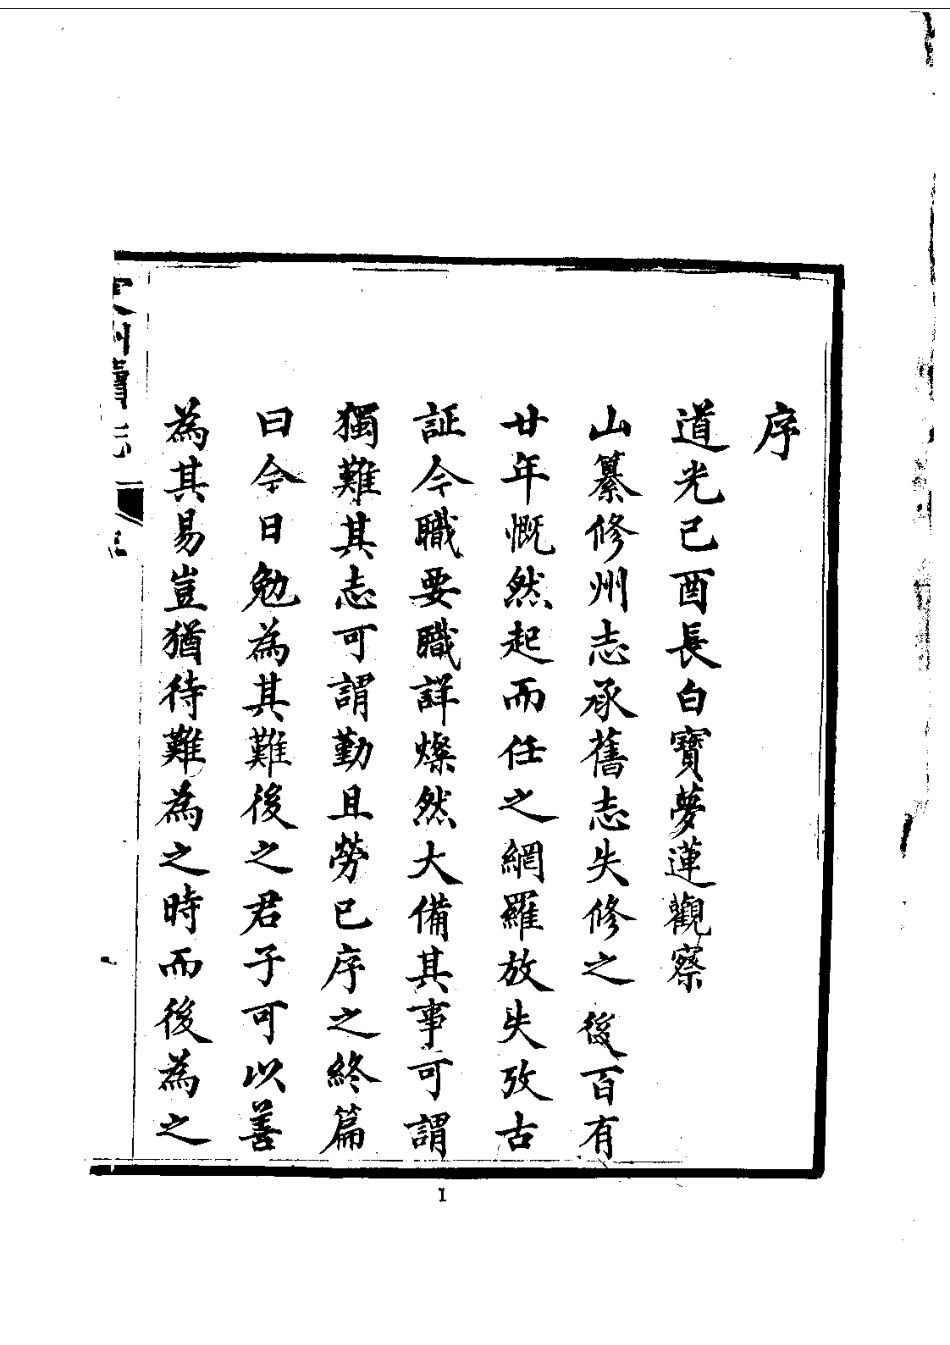 序
道光己酉長白寶夢蓮觀察
山纂修州志承舊志失修之後百有
廿年慨然起而任之網羅放失攷古
証今職要職詳燦然大備其事可謂
獨難其志可謂勤且勞已序之終篇
曰今日勉為其難後之君子可以善
為其易豈猶待難為之時而後為之
州續志
1